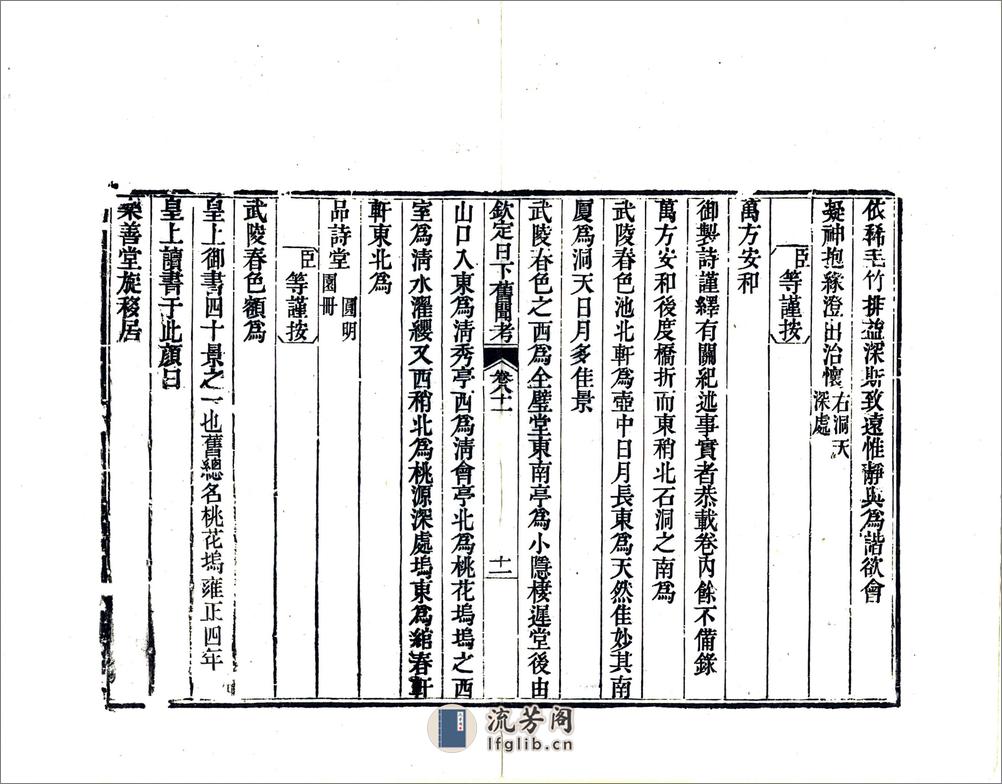 依稀毛竹排益深斯致遠惟靜與爲諧欲會
凝神抱緣澄出治懷右洞天
深處
臣等謹按
萬方安和
御製詩謹繹有關紀述事實者恭載卷內餘不備錄
萬方安和後度橋折而東稍北石洞之南爲
武陵春色池北軒爲壺中日月長東爲天然佳妙其南
厦爲洞天日月多佳景
武陵春色之西爲全璧堂東南亭爲小隱棲遲堂後由
欽定日下舊聞考 卷八十一 十一
山口入東爲清秀亭西爲清會亭北爲桃花塢塢之西
室爲清水濯纓又西稍北爲桃源深處塢東爲綰春軒
軒東北爲
品詩堂圓明
園冊
臣等謹按
武陵春色額爲
皇上御書四十景之一也舊總名桃花塢雍正四年
皇上讀書于此顏曰
樂善堂旋移居
流芳阁
lfglib.cn